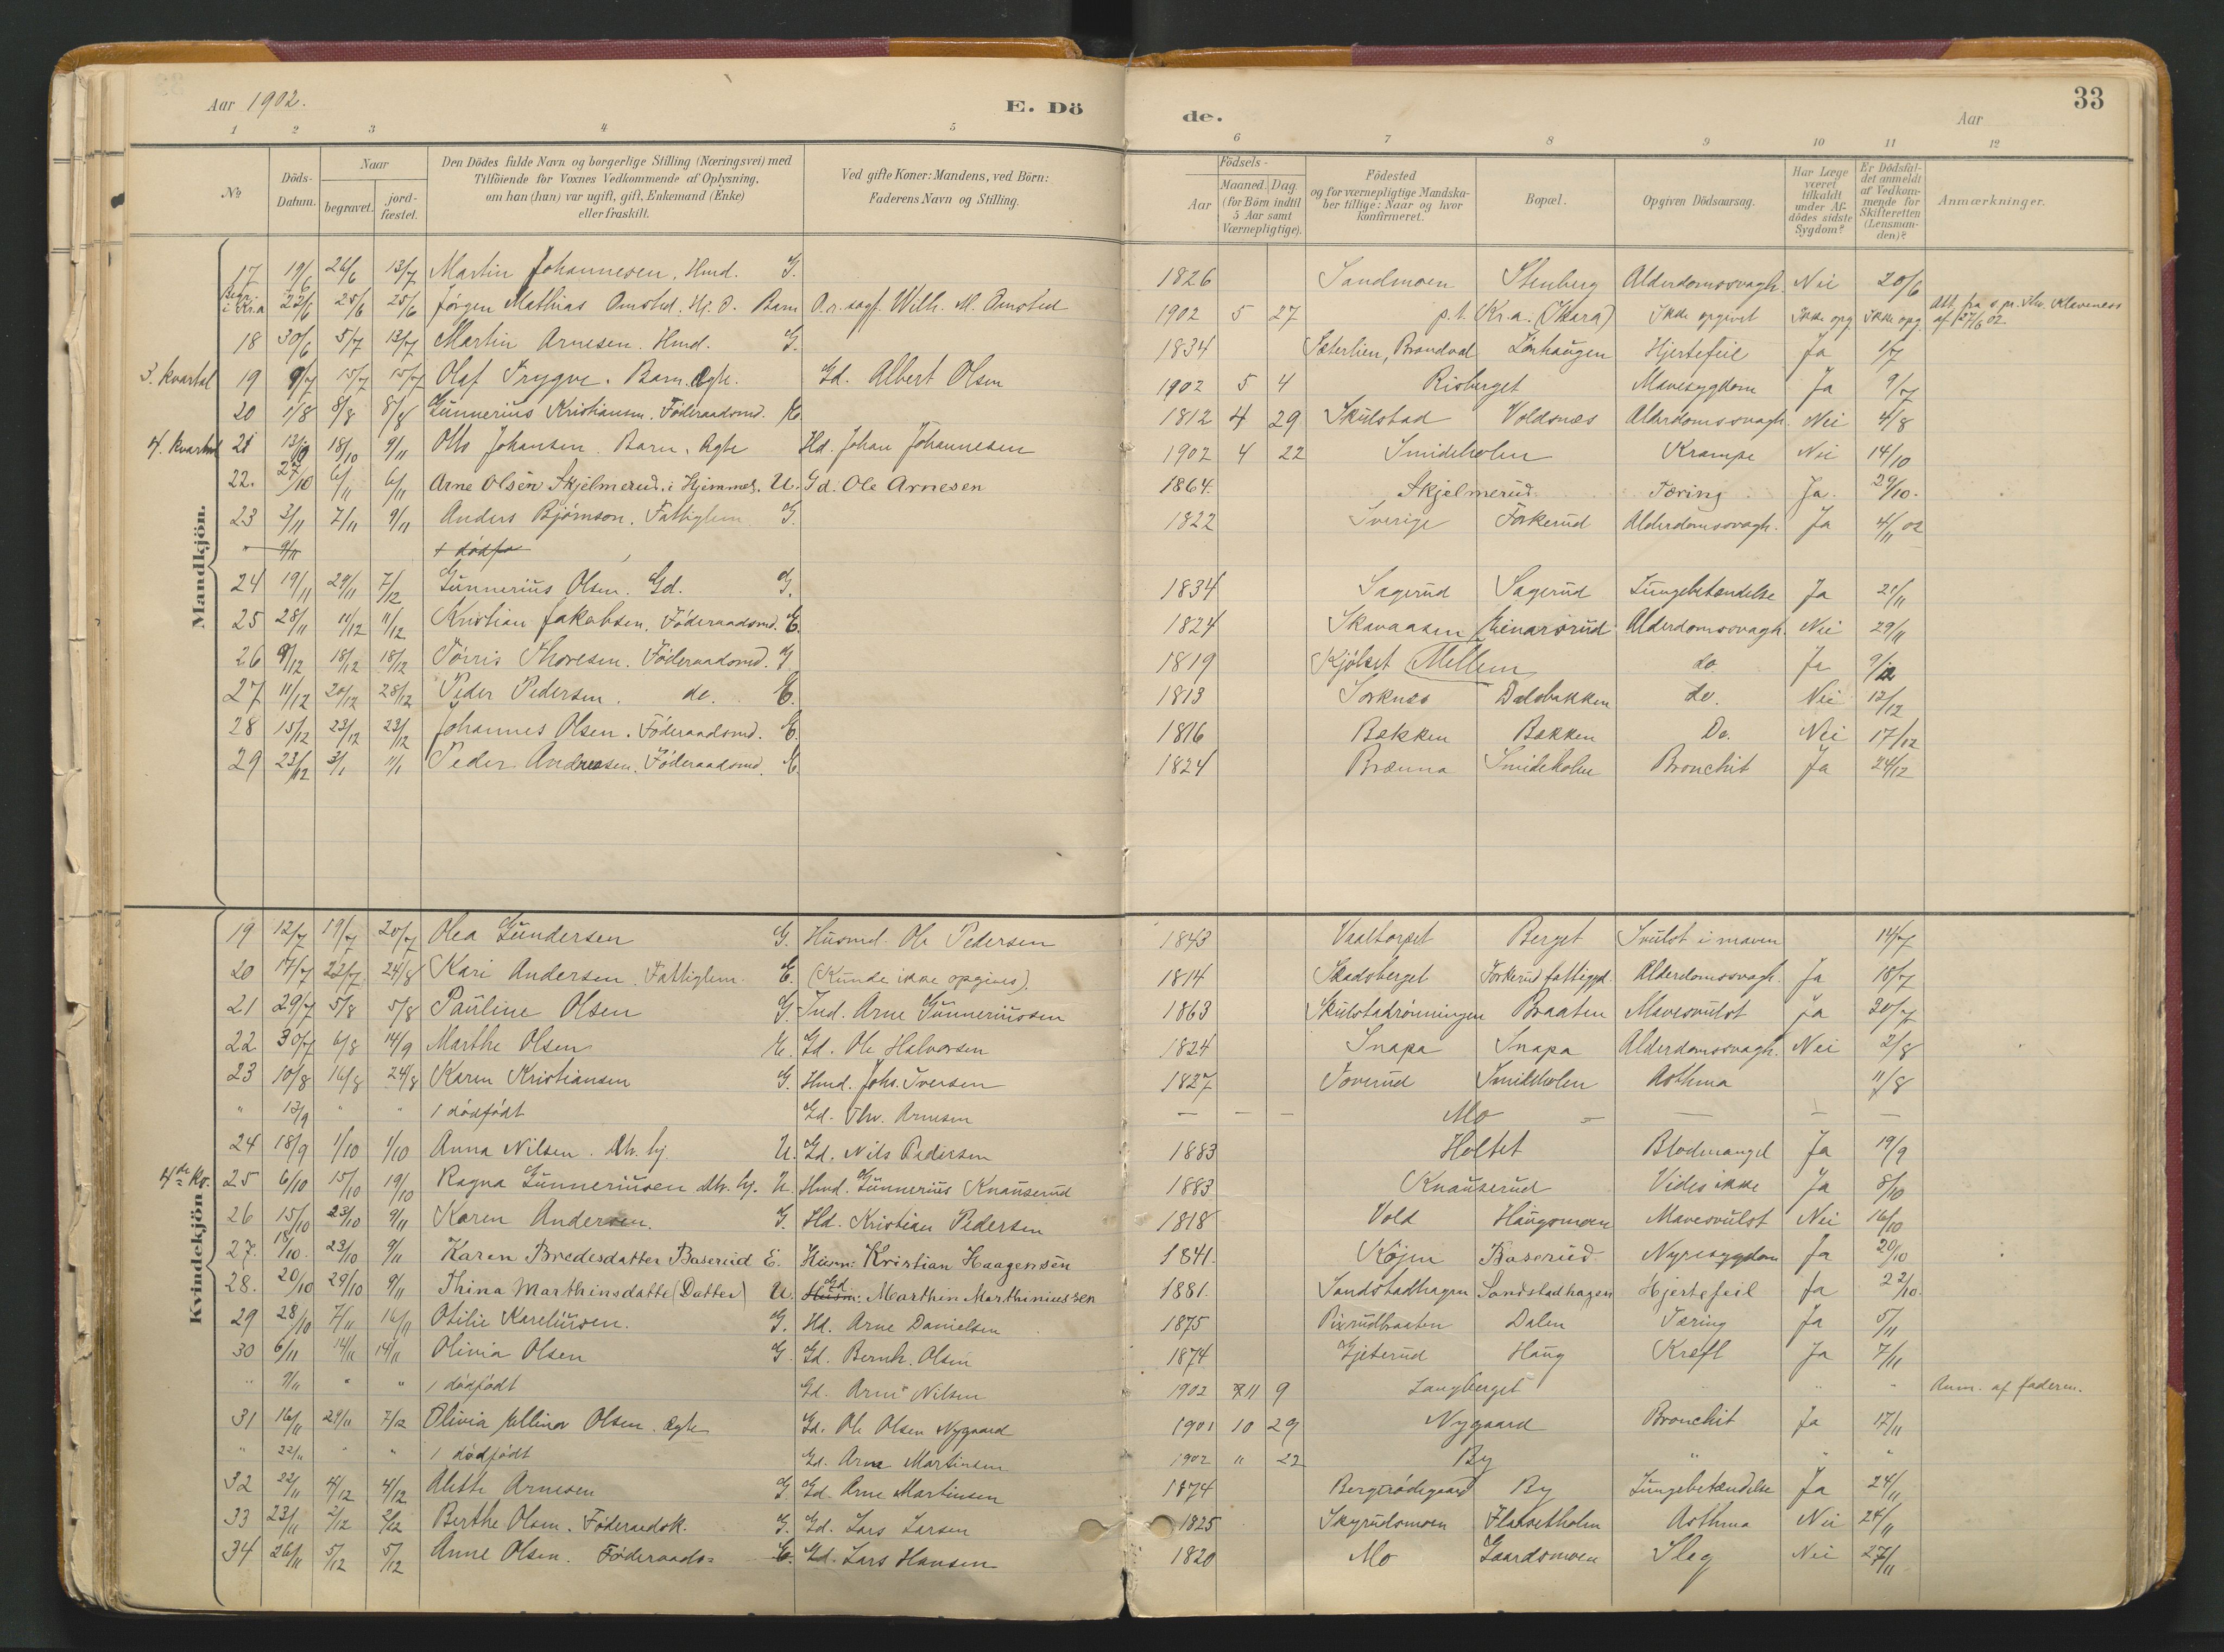 Aar 1902. E. Dö
de. Aar 33
1 2 3 4 5 6 7 8 9 10 11 12
№ Döds-Datum. Naar begravet. jord-fæstet. Den Dödes fulde Navn og borgerlige Stilling (Næringsvei) med Tilföiende for Voxnes Vedkommende af Oplysning, om han (hun) var ugift, gift, Enkemand (Enke) eller fraskilt. Ved gifte Koner: Mandens, ved Börn: Faderens Navn og Stilling. Födsels- Aar Maaned. Dag. (for Börn indtil 5 Aar samt Værnepligtige). Födested og for værnepligtige Mandskaber tillige: Naar og hvor konfirmeret. Bopæl. Opgiven Dödsaarsag. Har Læge været tilkaldt under Afdödes sidste Sygdom? Er Dödsfaldet anmeldt af Vedkommende for Skifteretten (Lensmanden)? Anmærkninger.
Mandkjön.
17 19/6 26/6 13/7 Martin Johannesen, Hmd. G. 1826 Sandmoen Stenberg Alderdomssvagh. Nei 20/6
Begr. i Kr.a 22/6 25/6 25/6 Jörgen Mathias Onsted. Hj. D. Barn O.r.sagf. Wilh. M. Onsted 1902 5 27 p.t. Kr.a. (Skara) Ikke opgivet Ikke opg. Ikke opg. Att. fra s.pr. Thv. Klaveness af 27/6 02
18 30/6 5/7 13/7 Martin Arnesen. Hmd. G. 1834 Sæterlien, Brandval Lörhaugen Hjertefeil Ja 1/7
3. kvartal 19 9/7 15/7 15/7 Olaf Trygve. Barn. Ægte. Gd. Albert Olsen 1902 5 4 Risberget Mavesygdom Ja 9/7
20 1/8 8/8 8/8 Gunnerius Kristiansen. Föderaadsmd. E. 1812 4 29 Skulstad Voldsnæs Alderdomssvagh. Nei 4/8
4. kvartal 21 13/10 18/10 9/11 Otto Johansen. Barn. Ægte Hd. Johan Johannesen 1902 4 22 Smideholen Krampe Nei 14/10
22. 27/10 6/11 6/11 Arne Olsen Skjelmerud. i Hjemmet. U. Gd. Ole Arnesen 1864. Skjelmerud Tæring Ja. 29/10.
23 3/11 7/11 9/11 Anders Björnson. Fattiglem G. 1822 Sverige Torkerud Alderdomssvagh. Ja 4/11 02
" 9/11 1 dödfø
24 19/11 29/11 7/12 Gunnerius Olsen. Gd. G. 1834 Sagerud Sagerud Lungebetændelse Ja 21/11
25 28/11 11/12 11/12 Kristian Jakobsen. Föderaadsmd. E. 1824 Skavaasen Einarsrud Alderdomssvagh. Nei 29/11
26 9/12 18/12 18/12 Törris Thoresen. Föderaadsmd. G. 1819 Kjölset Mellem do. Ja 9/12
27 11/12 20/12 28/12 Peder Pedersen. do. E. 1813 Sorknes Dalsbakken do. Nei 12/12
28 15/12 23/12 23/12 Johannes Olsen. Föderaadsmd. E. 1816 Bakken Bakken Do. Nei 17/12
29 23/12 3/1 11/1 Peder Andresen. Föderaadsmd. E. 1824 Brænna Smideholen Bronchit Ja 24/12
Kvindekjön.
19 12/7 19/7 20/7 Olea Gundersen G. Husmd. Ole Pedersen 1843 Vaaltorpet Berget Svulst i maven 14/7
20 17/7 22/7 24/8 Kari Andersen. Fattiglem. E. (Kunde ikke opgives). 1814 Skadsberget Torkerud fattiggd. Alderdomssvagh. Ja 18/7
21 29/7 5/8 5/8 Pauline Olsen G. Ind. Arne Gunneriussen 1863 Skulstadrönningen Braaten Mavesvulst Ja 30/7
22 30/7 6/8 14/9 Marthe Olsen E. Gd. Ole Halvorsen 1824 Snapa Snapa Alderdomssvagh. Nei 2/8
23 10/8 16/8 24/8 Karen Kristiansen G. Hmd. Johs. Iversen 1827 Toverud Smideholen Asthma 11/8
" 13/9 " " 1 dödfödt Gd. Thv. Arnesen — — — Mo — — — —
24 18/9 1/10 1/10 Anna Nilsen. dtr. hj. U. Gd. Nils Pedersen 1883 Holtet Blodmangel Ja 19/9
4de kv. 25 6/10 15/10 19/10 Ragna Gunneriusen dtr. hj. U. Hmd. Gunnerius Knauserud 1883 Knauserud Vides ikke Ja 8/10
26 15/10 23/10 9/11 Karen Andersen. G. Hd. Kristian Pedersen 1818 Vold Haugsmoen Mavesvulst Nei 16/10
27. 18/10. 23/10 9/11 Karen Bredesdatter Baserud E. Husm: Kristian Haagensen 1841. Köjen Baserud Nyresygdom Ja 20/10
28. 20/10 29/10 9/11 Thina Marthinsdatte (Datter) U. Husm: Gd Marthin Marthiniussen 1881. Sandstadhagen Sandstadhagen Hjertefeil Ja 22/10.
29 28/10 7/11 16/11 Otilie Kareliusen. G. Hd. Arne Danielsen 1875 Pixrudbraaten Dalen Tæring Ja 5/11
30 6/11 14/11 14/11 Olivia Olsen G. Gd. Bernh. Olsen 1874 Gjeterud Haug Kræft Ja 7/11
" 9/11 " " 1 dödfödt Gd. Arne Nilsen 1902 11 9 Langberget " " Anm. af faderen.
31 16/11 29/11 7/12 Olivia Elina Olsen. Ægte Gd. Ole Olsen Nygaard 1901 10 29 Nygaard Bronchit Ja 17/11
" 22/11 " " 1 dödfödt Gd. Arne Martinsen 1902 " 22 By " " "
32 22/11 4/12 4/12 Alette Arnesen G. Gd. Arne Martinsen 1874 Bergerödegaard By Lungebetændelse Ja 24/11
33 23/11 2/12 2/12 Berthe Olsen. Föderaadsk. G. Gd. Lars Larsen 1825 Skyrudsmoen Flatsetholen Asthma Nei 24/11
34 26/11 5/12 5/12 Anne Olsen. Föderaads= E. Gd. Lars Hansen 1820 Mo Gaardsmoen Slag Nei 27/11